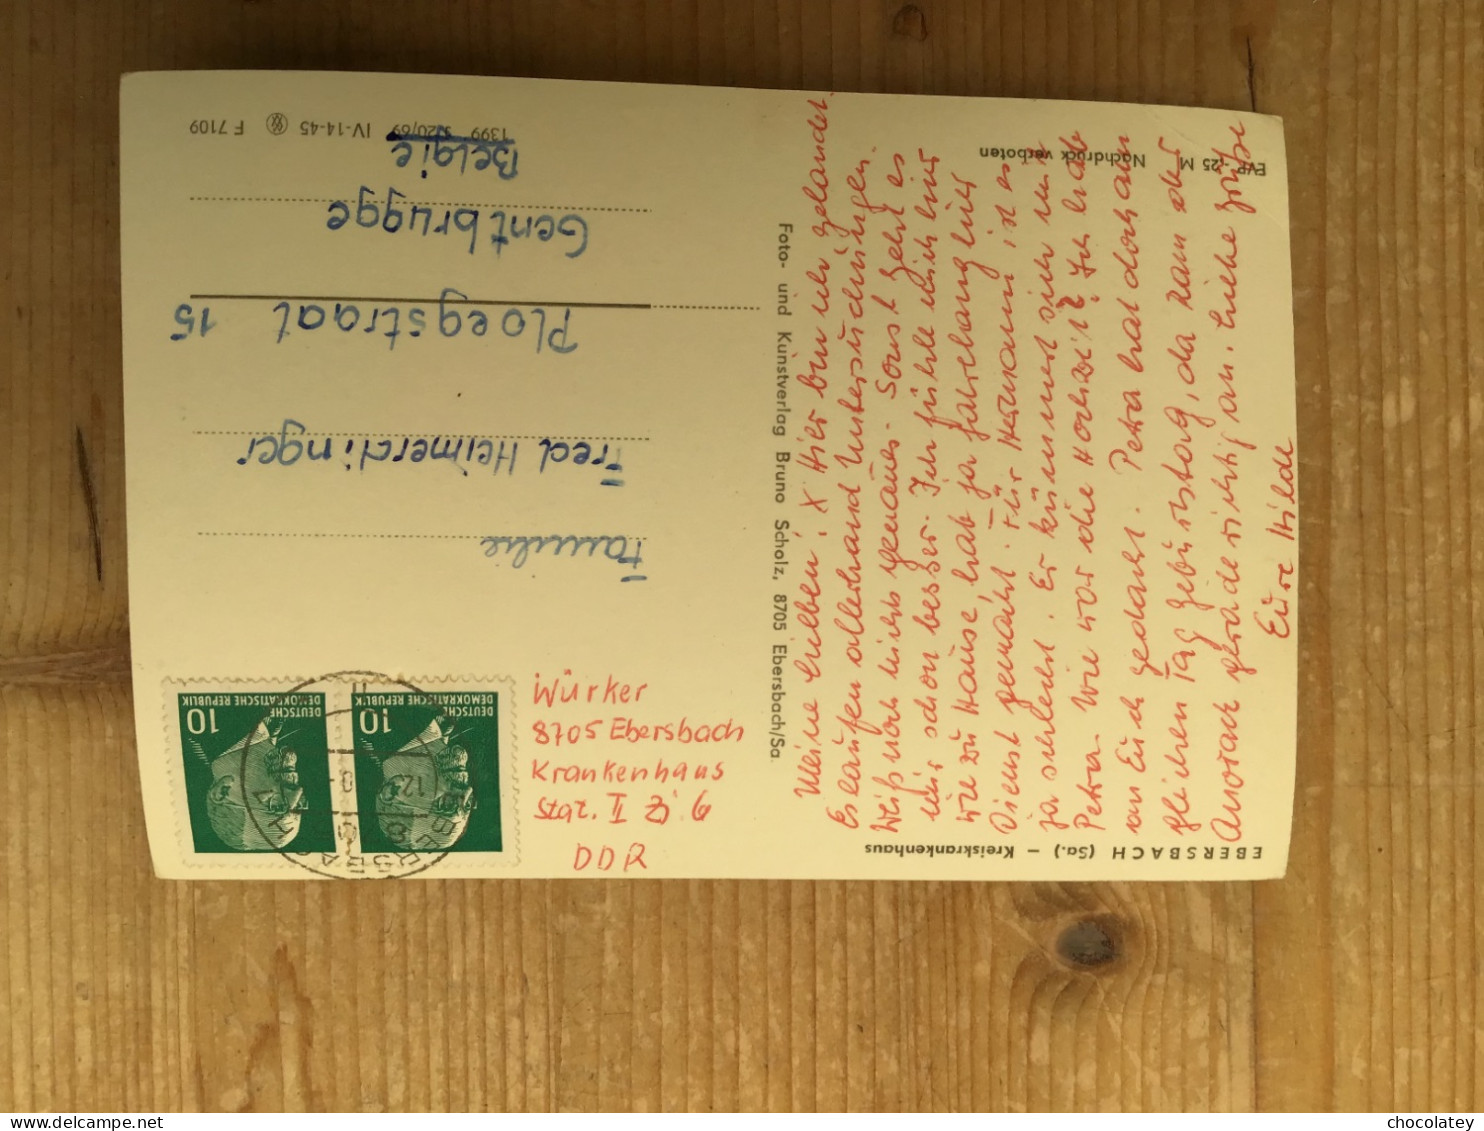 EBERSBACH (Sa.) – Kreiskrankenhaus
Meine Lieben! X Hier bin ich gelandet.
Es laufen allerhand Untersuchungen.
Weiß noch nichts genaues. Sonst geht es
mir schon besser. Ich fühle mich hier
wie zu Hause, hab ja jahrelang hier
Dienst gemacht. Für Hermann ist es
ja schlecht. Er kümmert sich mit
Petra. Wie war die Hochzeit? Ich hab
an Euch gedacht. Petra hat doch am
gleichen Tag Geburtstag, da kam der
Anorak gerade richtig an. Liebe Grüße
Eure Hilde
EVP -,25 M Nachdruck verboten
Foto- und Kunstverlag Bruno Scholz, 8705 Ebersbach/Sa.
Würker
8705 Ebersbach
Krankenhaus
Stat. II Zi. 6
DDR
DEUTSCHE
DEMOKRATISCHE REPUBLIK
10
DEUTSCHE
DEMOKRATISCHE REPUBLIK
10
EBERSBACH
Familie
Fred Heimerdinger
Ploegstraat 15
Gentbrugge
Belgie
1399 S20/69 IV-14-45 F 7109
chocolatey